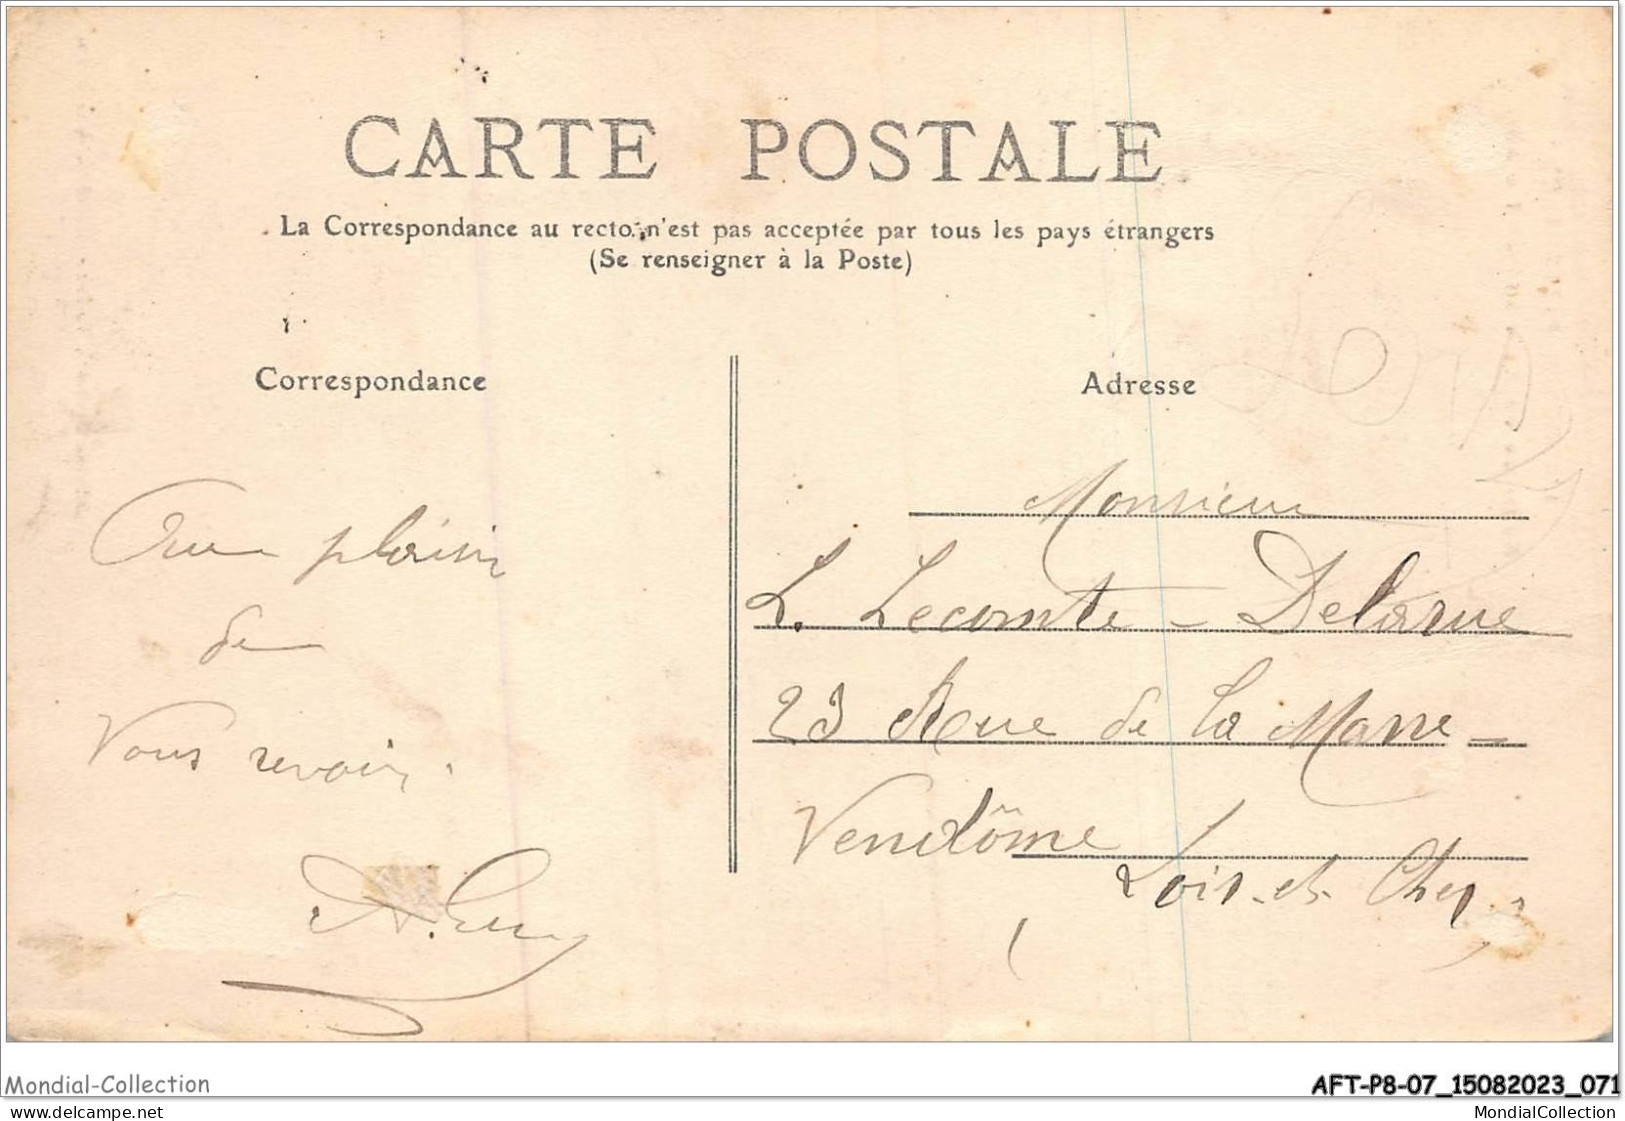 CARTE POSTALE
La Correspondance au recto n'est pas acceptée par tous les pays étrangers
(Se renseigner à la Poste)
Correspondance
Adresse
Au plaisir
de
Vous revoir.
Monsieur
L. Lecomte-Delarue
23 Rue de la Marre
Vendôme
Loir-et-Cher
Mondial-Collection
AFT-P8-07_15082023_071
delcampe.net
MondialCollection